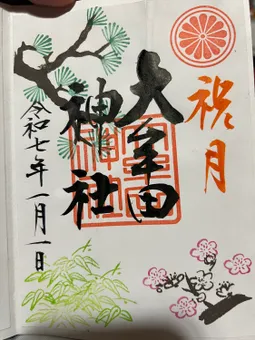 祝月
大牟田
神社
令和七年一月一日